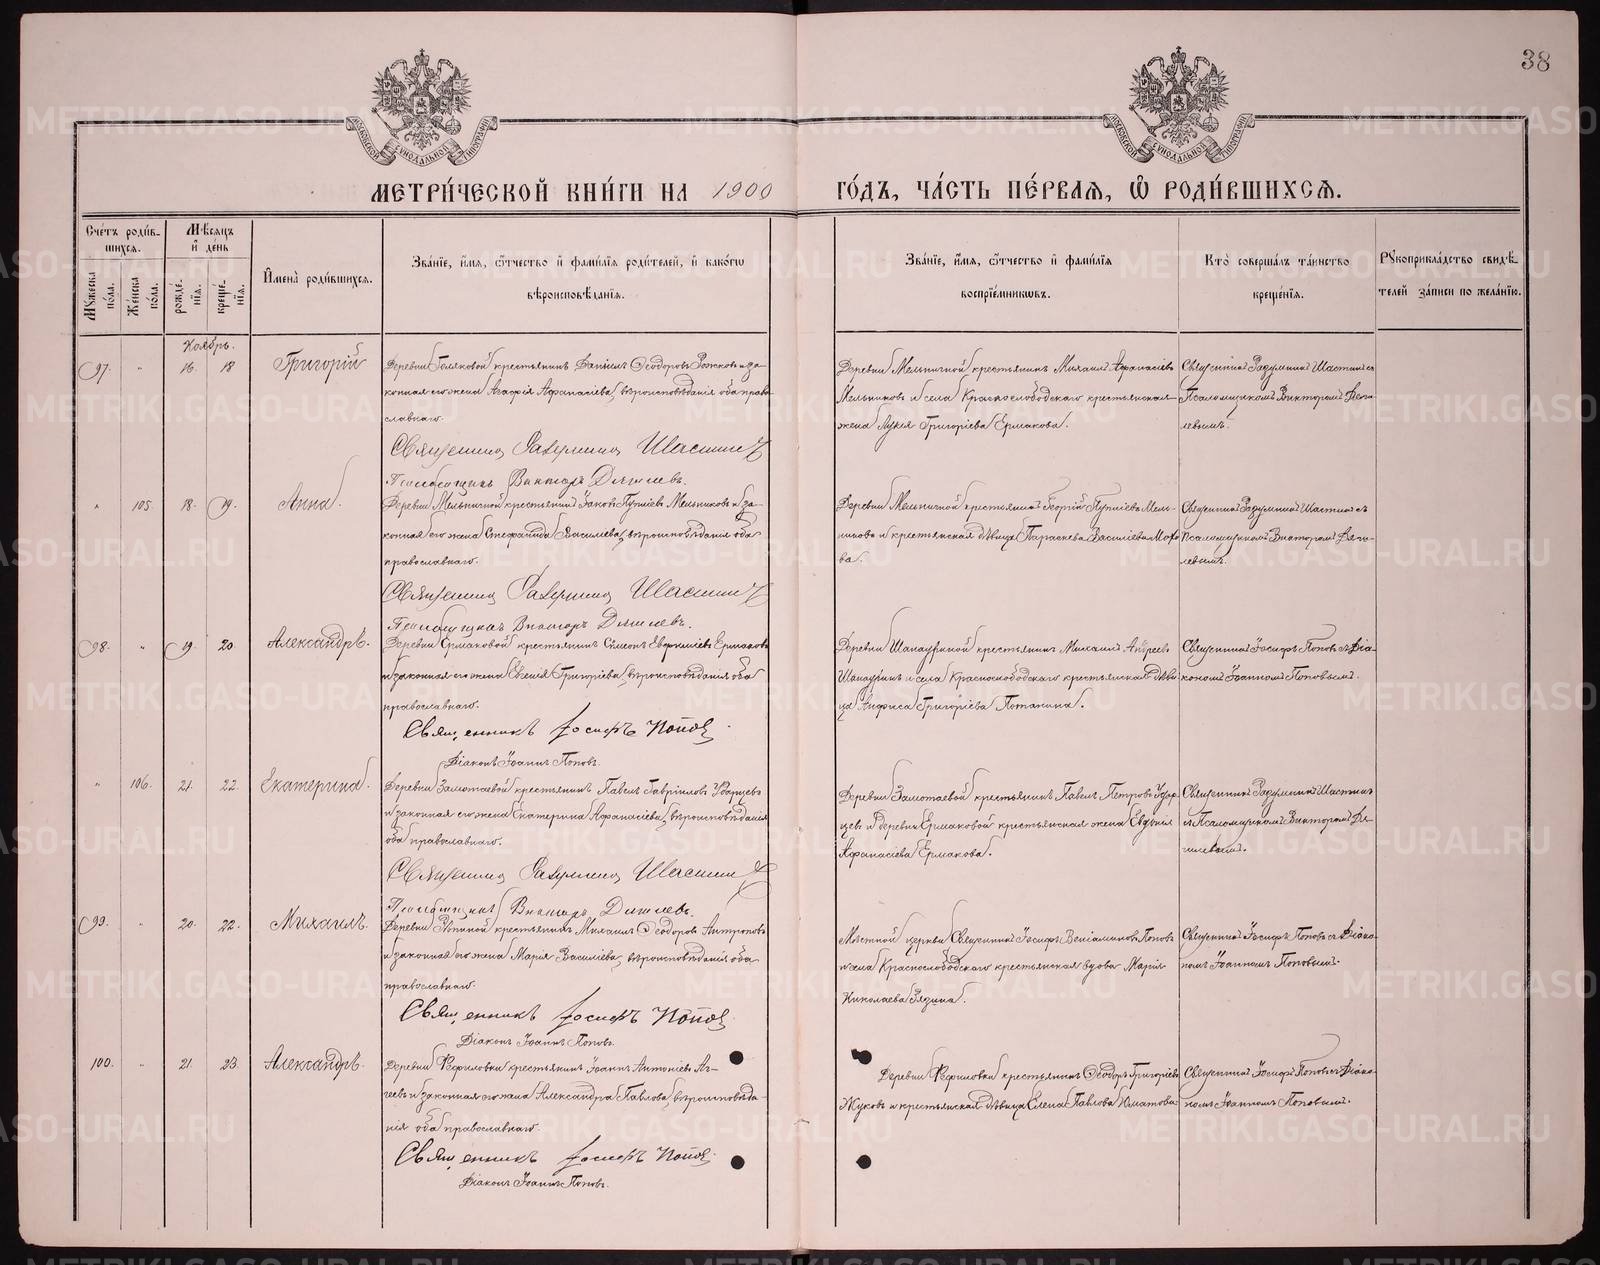 38
МОСКОВСКОЙ СУНОДАЛЬНОЙ ТИПОГРАФІИ
МОСКОВСКОЙ СУНОДАЛЬНОЙ ТИПОГРАФІИ
МЕТРИ́ЧЕСКОЙ КНИ́ГИ НА 1900 ГО́ДЪ, ЧА́СТЬ ПЕ́РВАЯ, Ѽ РОДИ́ВШИХСЯ.
Сче́тъ роди́в-
шихся.
Мѣ́сяцъ
и де́нь
Му́жеска по́ла.
Же́нска по́ла.
рожде́-
нія.
креще́-
нія.
Имена̀ роди́вшихся.
Зва́ніе, и́мя, ѻ́тчество и фами́лія роди́телей, и како́гѡ
вѣроисповѣ́данія.
Зва́ніе, и́мя, ѻ́тчество и фами́лія
воспріе́мникѡвъ.
Кто̀ соверша́лъ та́инство
креще́нія.
Рꙋкоприкла́дство свидѣ́-
телей за́писи по жела́нію.
Ноябрь.
97. " 16. 18 Григорій
Деревни Беляковой крестьянинъ Даніилъ Ѳеодоровъ Рожковъ и за-
конная его жена Агафія Афанасіева, вѣроисповѣданія оба право-
славнаго.
Священникъ Шастинъ
Псаломщикъ Викторъ
Деревни Мельничной крестьянинъ Михаилъ Афанасіевъ
Мельниковъ и села Краснослободскаго крестьянская
жена Лукія Григоріева Ермакова.
Священникъ Шастинъ съ
Псаломщикомъ Викторомъ
" 105. 18. 19. Анна.
Деревни Мельничной крестьянинъ Іаковъ Мельниковъ и за-
конная его жена Стефанида Васильева, вѣроисповѣданія оба
православнаго.
Священникъ Шастинъ
Псаломщикъ Викторъ
Деревни Мельничной крестьянинъ Георгій Мель-
никовъ и крестьянская дѣвица Параскева Васильева
ва.
Священникъ Шастинъ съ
Псаломщикомъ Викторомъ
98. " 19. 20. Александръ.
Деревни Ермаковой крестьянинъ Сѵмеонъ Ермаковъ
и законная его жена Евгенія Григоріева, вѣроисповѣданія оба
православнаго.
Священникъ Іосифъ Поповъ
Діаконъ Іоаннъ Поповъ.
Деревни Шапауриной крестьянинъ Михаилъ Андреевъ
Шапауринъ и села Краснослободскаго крестьянская дѣви-
ца Анфиса Григоріева Потанина.
Священникъ Іосифъ Поповъ съ Діа-
кономъ Іоанномъ Поповымъ.
" 106. 21. 22. Екатерина.
Деревни Замотаевой крестьянинъ Павелъ Гавріиловъ Ударцевъ
и законная его жена Екатерина Афанасіева, вѣроисповѣданія
оба православнаго.
Священникъ Шастинъ
Псаломщикъ Викторъ
Деревни Замотаевой крестьянинъ Павелъ Петровъ Удар-
цевъ и деревни Ермаковой крестьянская жена Евдокія
Афанасіева Ермакова.
Священникъ Шастинъ
съ Псаломщикомъ Викторомъ
99. " 20. 22. Михаилъ.
Деревни крестьянинъ Михаилъ Ѳеодоровъ Антроповъ
и законная его жена Марія Васильева, вѣроисповѣданія оба
православнаго.
Священникъ Іосифъ Поповъ
Діаконъ Іоаннъ Поповъ.
Мѣстной церкви Священникъ Іосифъ Веніаминовъ Поповъ
и села Краснослободскаго крестьянская вдова Марія
Николаева
Священникъ Іосифъ Поповъ съ Діако-
номъ Іоанномъ Поповымъ.
100. " 21. 23. Александръ.
Деревни Фефиловки крестьянинъ Іоаннъ Антоніевъ
и законная его жена Александра Павлова, вѣроисповѣда-
нія оба православнаго.
Священникъ Іосифъ Поповъ
Діаконъ Іоаннъ Поповъ.
Деревни Фефиловки крестьянинъ Ѳеодоръ Григоріевъ
Жуковъ и крестьянская дѣвица Елена Павлова
Священникъ Іосифъ Поповъ съ Діако-
номъ Іоанномъ Поповымъ.
METRIKI.GASO-URAL.RU